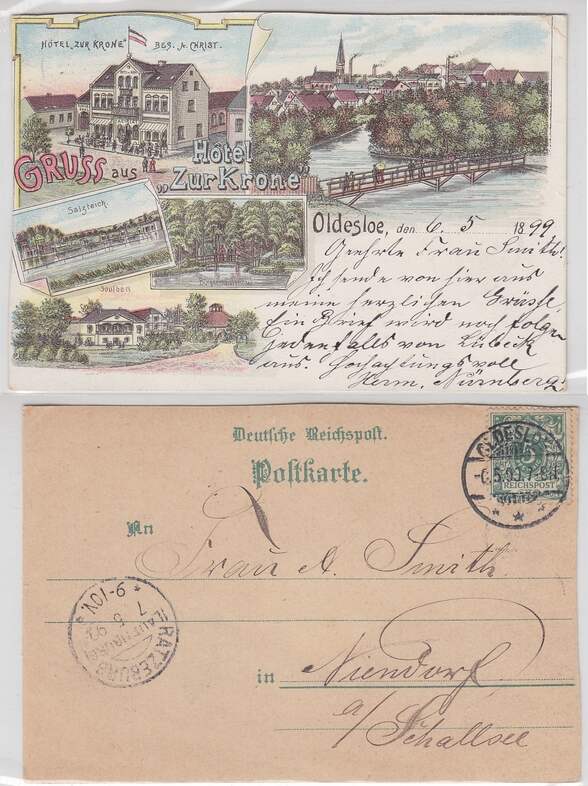 HÔTEL "ZUR KRONE" BES. A. CHRIST.
GRUSS aus Hôtel
"Zur Krone"
Salzteich.
Soolbad
Oldesloe, den 6. 5 1899
Geehrte Frau Smith!
Ich sende von hier aus
meine herzlichen Grüsse
Ein Brief wird noch folgen
jedenfalls von Lübeck
aus. Hochachtungsvoll
Herm. Nürnberg.
Deutsche Reichspost.
Postkarte.
OLDESLOE
-6.5.99.7-8N
5
REICHSPOST
An
Frau A. Smith
RATZEBURG
(LAUENBURG)
7 5 99
9-10V.
in Niendorf
a/ Schallsee